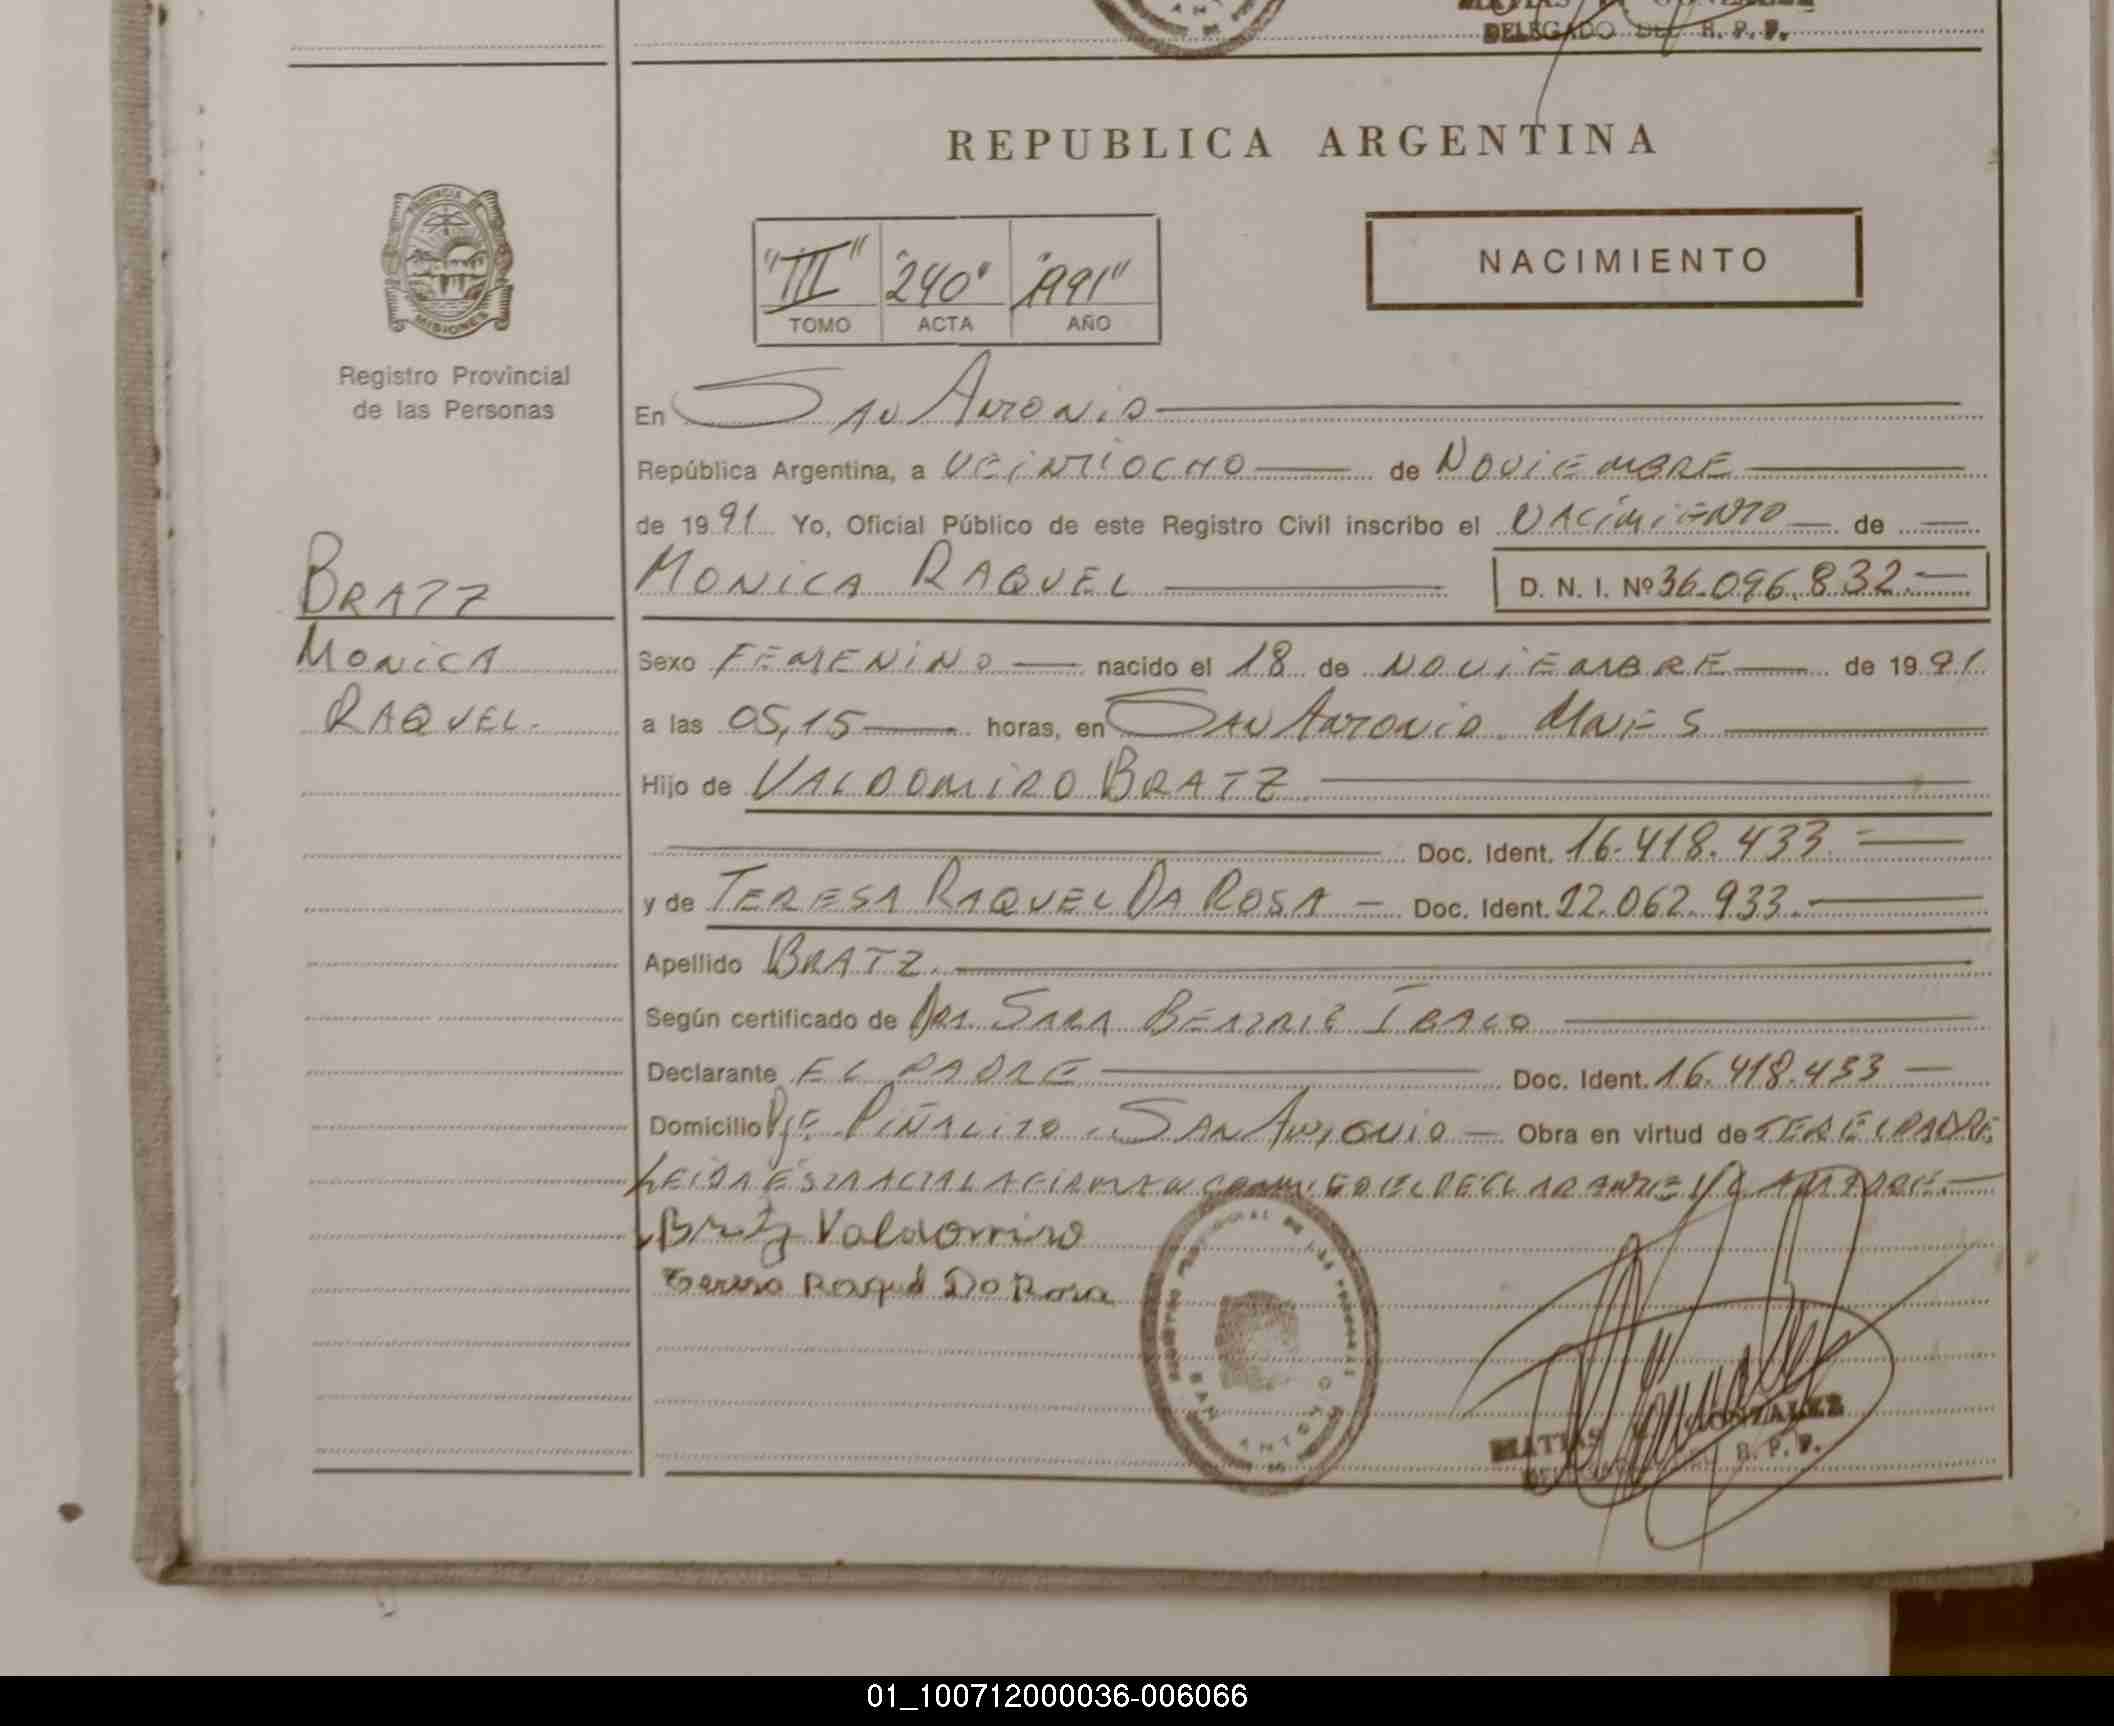 DELEGADO DEL R. P. P.
REPUBLICA ARGENTINA
PROVINCIA DE
MISIONES
"III" "240" "1991"
TOMO ACTA AÑO
NACIMIENTO
Registro Provincial
de las Personas
En SAN ANTONIO
República Argentina, a VEINTIOCHO de NOVIEMBRE
de 1991 Yo, Oficial Público de este Registro Civil inscribo el NACIMIENTO de
BRATZ
MONICA
RAQUEL.
MONICA RAQUEL D. N. I. Nº 36.096.832.
Sexo FEMENINO nacido el 18 de NOVIEMBRE de 1991
a las 05,15 horas, en SAN ANTONIO. MNES
Hijo de VALDOMIRO BRATZ
Doc. Ident. 16.418.433.
y de TERESA RAQUEL DA ROSA Doc. Ident. 22.062.933.
Apellido BRATZ.
Según certificado de DRA. SARA BEATRIZ
Declarante EL PADRE Doc. Ident. 16.418.433
Domicilio PJE. PIÑALITO. SAN ANTONIO Obra en virtud de SER EL PADRE
LEIDA ESTA ACTA LA FIRMAN CONMIGO EL DECLARANTE Y LA MADRE.
Bratz Valdomiro
Teresa Raquel Da Rosa
REGISTRO PROVINCIAL DE LAS PERSONAS
SAN ANTONIO
MATIAS GONZALEZ
R. P. P.
01_100712000036-006066